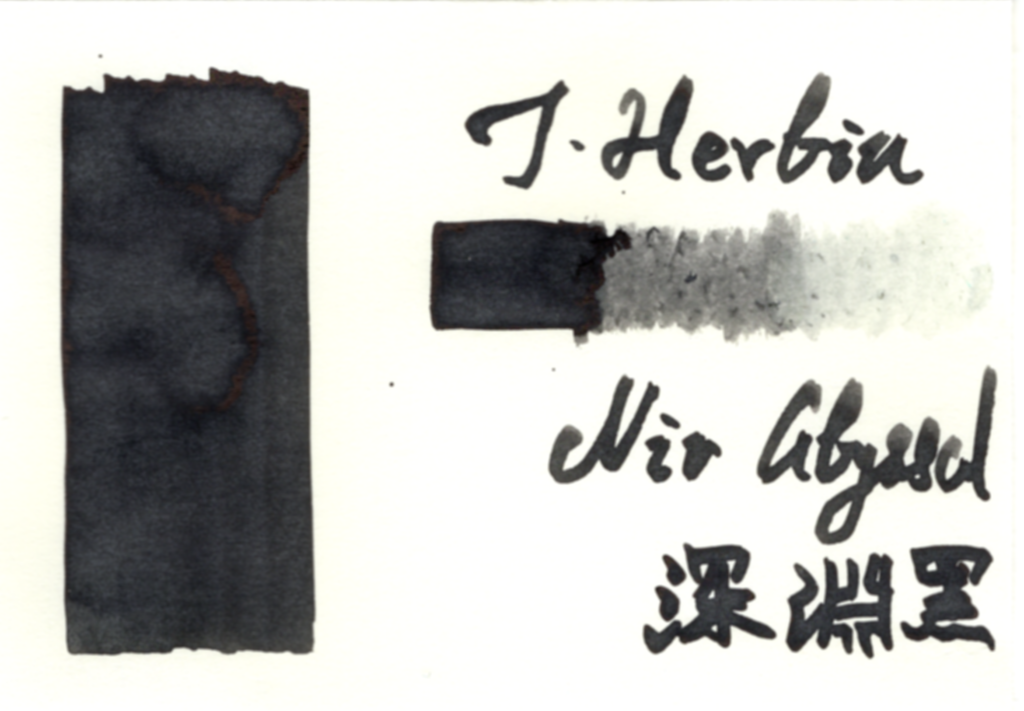 J. Herbin
Nir Abyssal
深淵黑